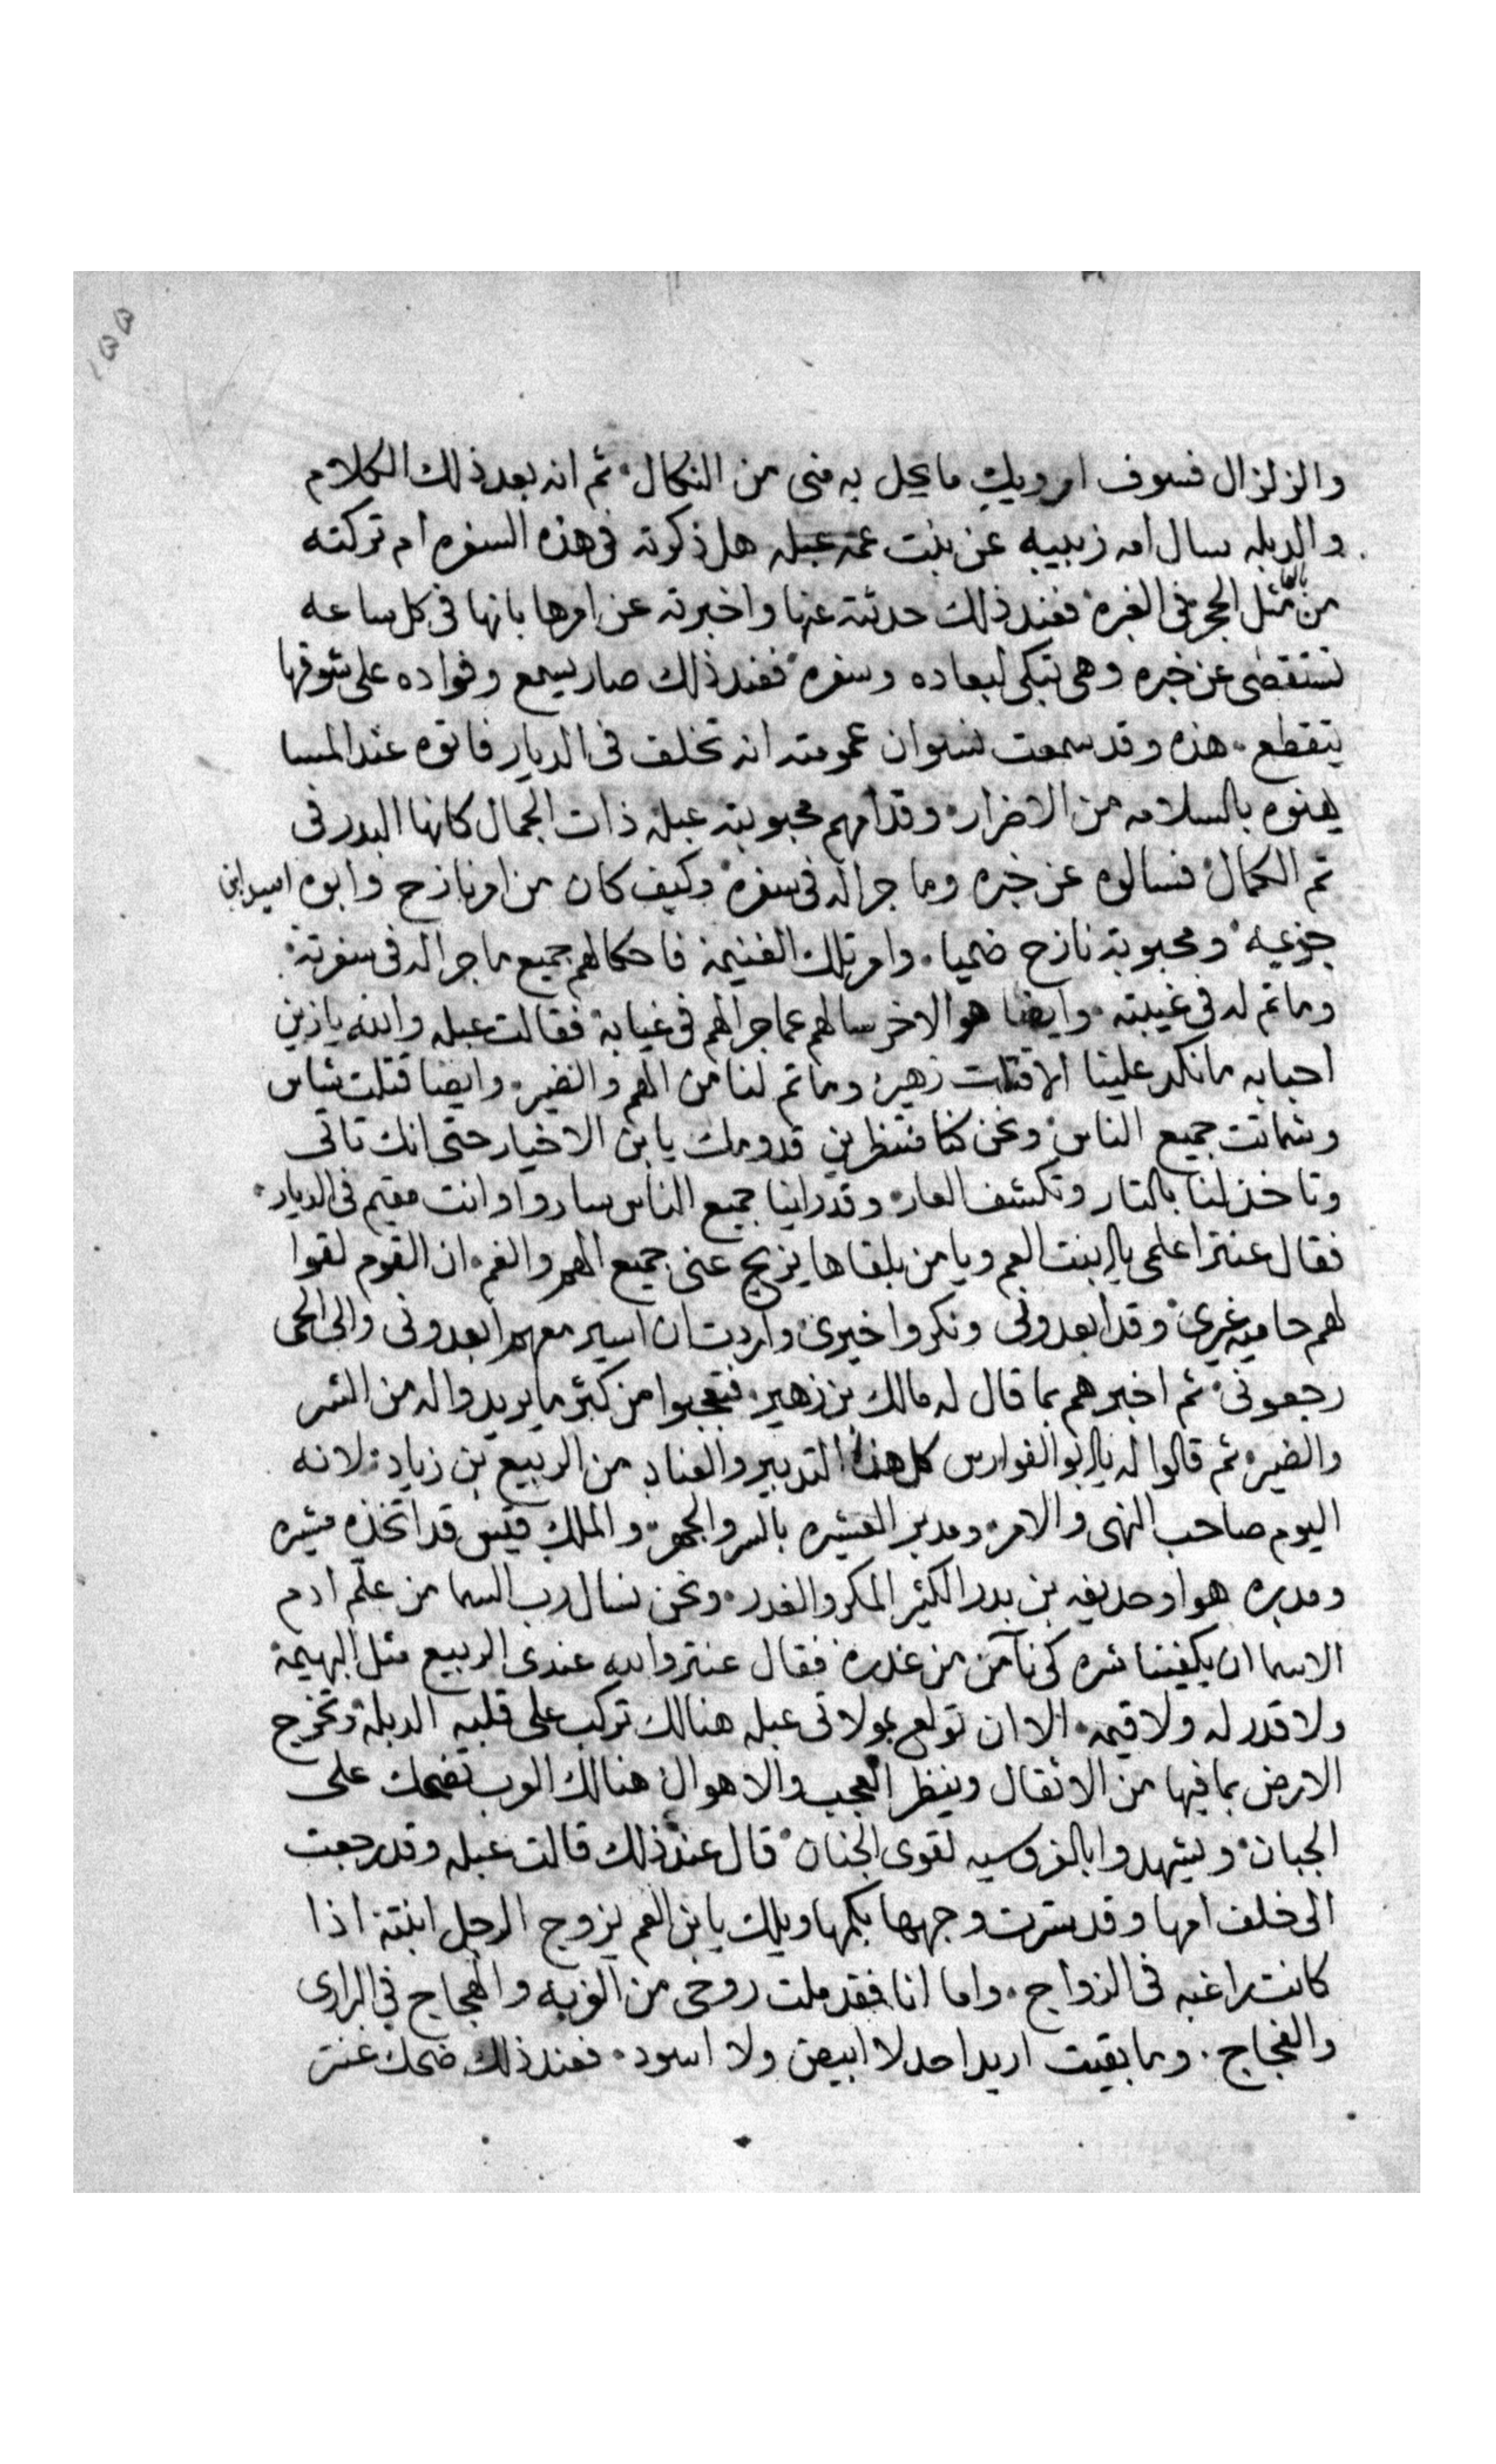 ١٥٥
والزلزال فسوف اوريك ما يحل به منى من النكال ثم انه بعد ذلك الكلام
والدبله سال امه زبيبه عن بنت عمه عبله هل ذكرته فى هذه السفره ام تركته
من بالها مثل الحجر فى الغبره فعند ذلك حدثته عنها واخبرته عن امرها بانها فى كل ساعه
تستقضى عن خبره وهى تبكى لبعاده وسفره فعند ذلك صار يسمع وفواده على شوقها
يتقطع هذه وقد سمعت نسوان عمومته انه تخلف فى الديار فاتوه عند المسا
يهنوه بالسلامه من الاضرار وقدامهم محبوبته عبلة ذات الجمال كانها البدر فى
تم الكمال فسالوه عن خبره وما جرا له فى سفره وكيف كان من امر نازح وابوه اسيد ابن
جزعيه ومحبوبة نازح ضميا وامر تلك الغنيمة فاحكا لهم جميع ما جرا له فى سفرته
وما تم له فى غيبته وايضا هو الاخر سالهم عما جرا لهم فى غيابة فقالت عبله والله يا زين
احبابه ما نكد علينا الا قتلت زهير وما تم لنا من الهم والضير وايضا قتلت شاس
وشماتت جميع الناس ونحن كنا منتظرين قدومك يا بن الاخيار حتى انك تاتى
وتاخذ لنا بالتار وتكشف العار وقد راينا جميع الناس ساروا وانت مقيم فى الديار
فقال عنتر اعلمى يا بنت العم ويا من بلقاها يزيح عنى جميع الهم والغم ان القوم لقوا
لهم حاميه غيرى وقد ابعدونى ونكروا خيرى واردت ان اسير معهم ابعدونى والى الحى
رجعونى ثم اخبرهم بما قال له مالك بن زهير فتعجبوا من كثر ما يريدوا له من الشر
والضير ثم قالوا له يا ابو الفوارس كل هذا التدبير والعناد من الربيع بن زياد لانه
اليوم صاحب النهى والامر ومدبر العشيره بالسر والجهر والملك قيس قد اتخذه مشيره
ومدبره هو او حديفه بن بدر الكثير المكر والغدر ونحن نسال رب السما من علم ادم
الاسما ان يكفينا شره كى نآمن من غدره فقال عنتر والله عندى الربيع مثل البهيمة
ولا قدر له ولا قيمه الا ان تولع بمولاتى عبله هنالك تركب على قلبه الدبلة وتخرج
الارض بما فيها من الاثقال وينظر العجب والاهوال هنالك الوب تضحك على
الجبان ويشهدوا بالفروسيه لقوى الجنان قال عند ذلك قالت عبله وقد رجعت
الى خلف امها وقد سترت وجهها بكمها ويلك يا بن العم يزوج الرجل ابنتة اذا
كانت راغبه فى الزواج واما انا فقد ملت روحى من الغربه والهجاج فى البرارى
والفجاج وما بقيت اريد احد لا ابيض ولا اسود فعند ذلك ضحك عنتر